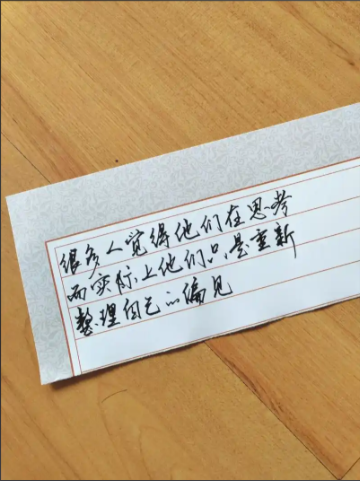 很多人觉得他们在思考
而实际上他们只是重新
整理自己的偏见